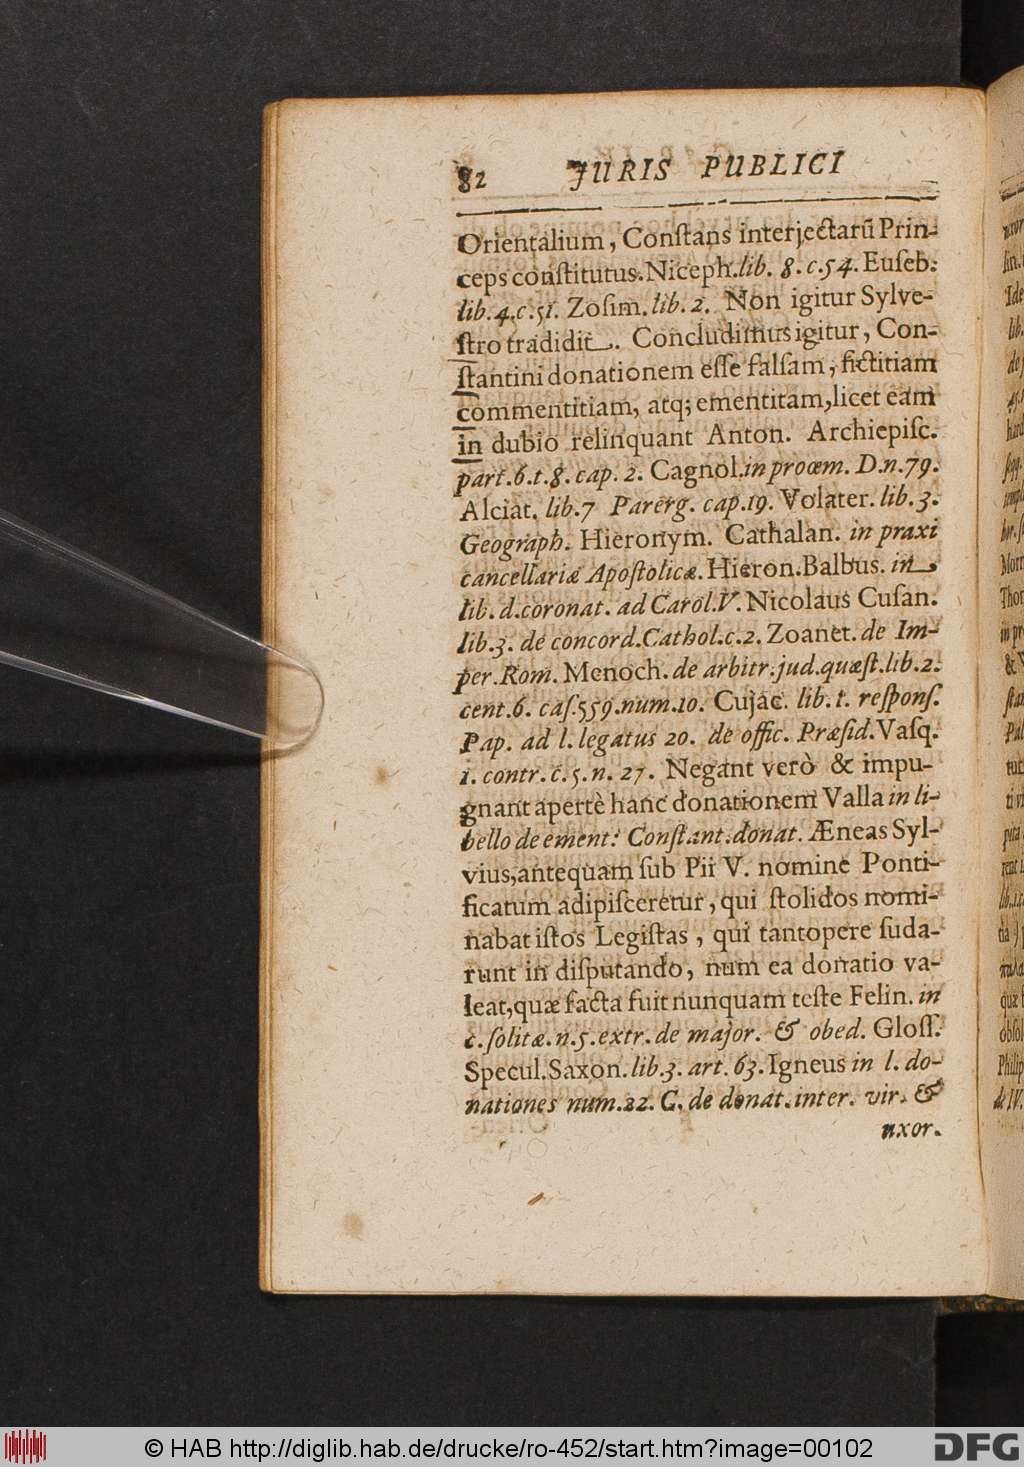 82 JURIS PUBLICI
Orientalium, Conſtans interjectarũ Prin-
ceps conſtitutus. Niceph. lib. 8. c. 54. Euſeb.
lib. 4. c. 51. Zoſim. lib. 2. Non igitur Sylve-
ſtro tradidit. Concludimus igitur, Con-
ſtantini donationem eſſe falſam, fictitiam
commentitiam, atq; ementitam, licet eam
in dubio relinquant Anton. Archiepiſc.
part. 6. t. 8. cap. 2. Cagnol. in proœm. D. n. 79.
Alciat. lib. 7 Parerg. cap. 19. Volater. lib. 3.
Geograph. Hieronym. Cathalan. in praxi
cancellariæ Apoſtolicæ. Hieron. Balbus. in
lib. d. coronat. ad Carol. V. Nicolaus Cuſan.
lib. 3. de concord. Cathol. c. 2. Zoanet. de Im-
per. Rom. Menoch. de arbitr. jud. quæſt. lib. 2.
cent. 6. caſ. 559. num. 10. Cujac. lib. 1. reſponſ.
Pap. ad l. legatus 20. de offic. Præſid. Vaſq.
1. contr. c. 5. n. 27. Negant verò & impu-
gnant apertè hanc donationem Valla in li-
bello de ement. Conſtant. donat. Æneas Syl-
vius, antequam ſub Pii V. nomine Ponti-
ficatum adipiſceretur, qui ſtolidos nomi-
nabat iſtos Legiſtas, qui tantopere ſuda-
runt in diſputando, num ea donatio va-
leat, quæ facta fuit nunquam teſte Felin. in
c. ſolitæ. n. 5. extr. de major. & obed. Gloſſ.
Specul. Saxon. lib. 3. art. 63. Igneus in l. do-
nationes num. 22. C. de donat. inter. vir. &
uxor.
© HAB http://diglib.hab.de/drucke/ro-452/start.htm?image=00102
DFG